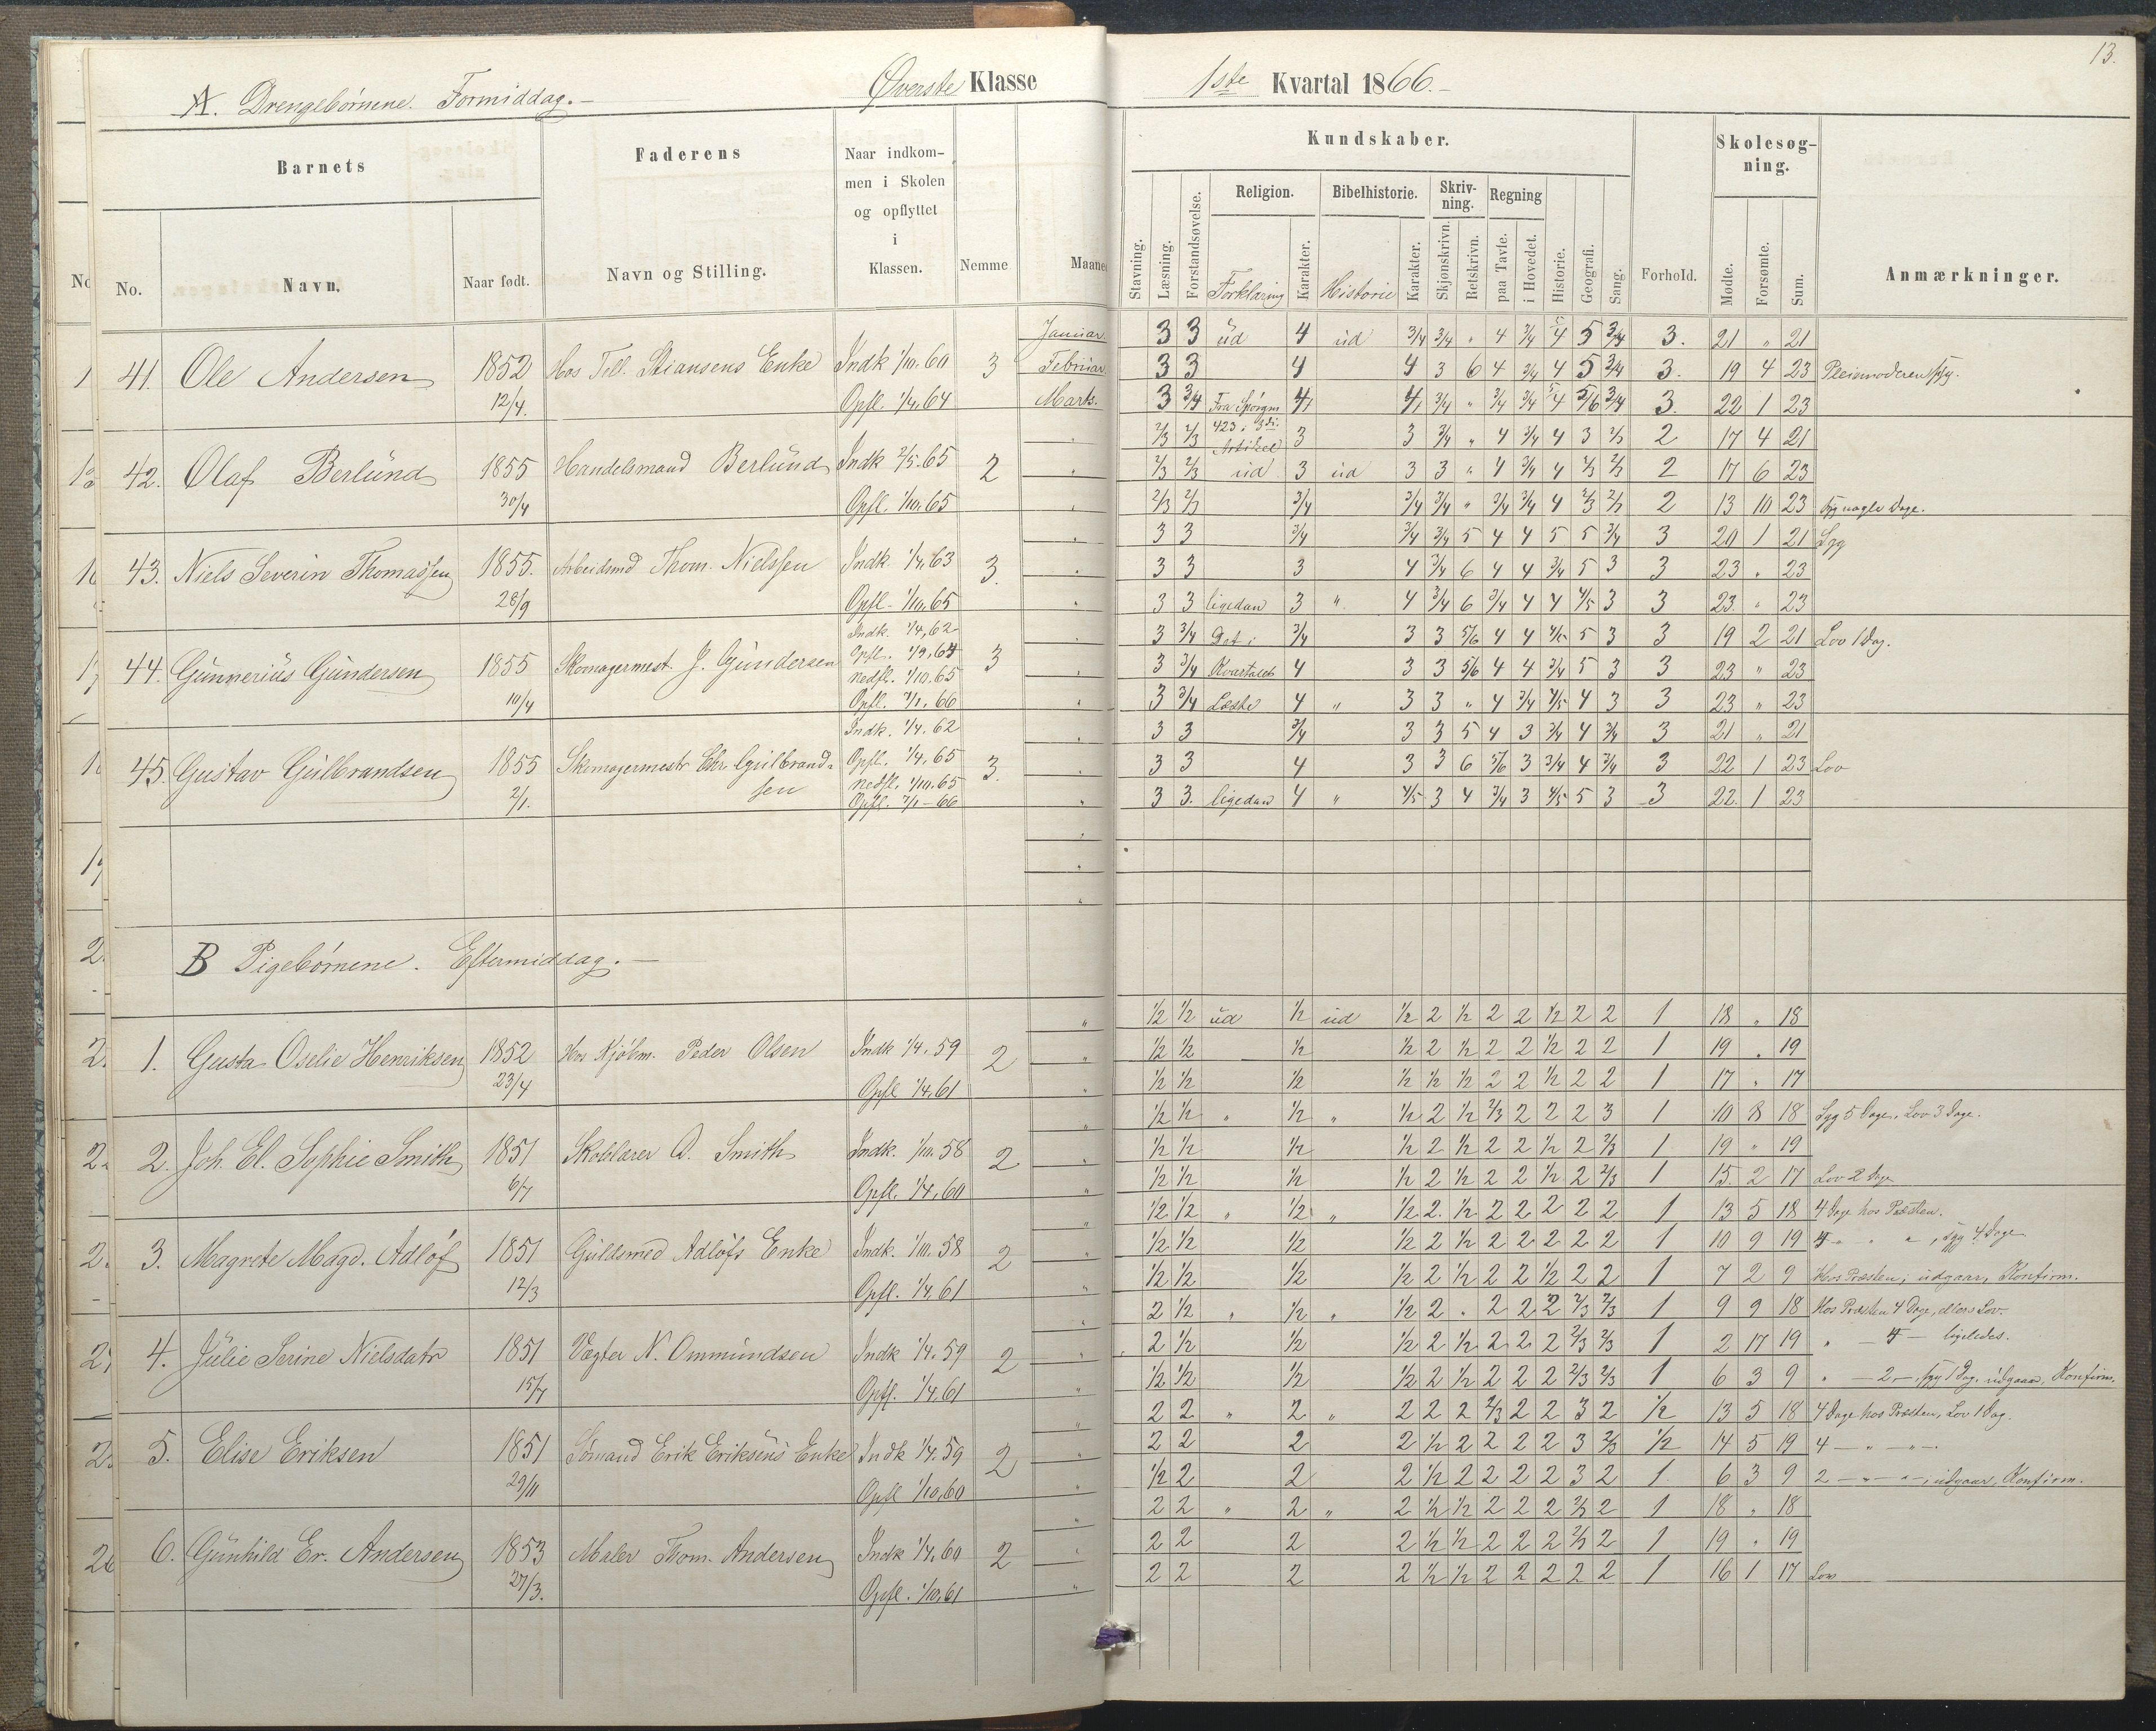 13.
A. Drengebørnene. Formiddag. — Øverste Klasse 1ste Kvartal 1866. —
Barnets Faderens Naar indkommen i Skolen og opflyttet i Klassen. Nemme Maaned
No. Navn. Naar født. Navn og Stilling.
Kundskaber. Forhold. Skolesøgning. Anmærkninger.
Stavning. Læsning. Forstandsøvelse. Religion. Bibelhistorie. Skrivning. Regning Historie. Geografi. Sang.
Forklaring Karakter. Historie Karakter. Skjønskrivn. Retskrivn. paa Tavle. i Hovedet. Mødte. Forsømte. Sum.
41. Ole Andersen 1852 12/4. Hos Tell. Stiansens Enke Indk 1/10.60 Opfl. 1/4.64 3
Januar. 3 3 ud 4 ud 3/4 3/4 " 4 3/4 4 5 3/4 3. 21 " 21
Februar 3 3 4 4 3 6 4 3/4 4 5 3/4 3. 19 4 23 Pleiemoderen syg.
Marts. 3 3/4 Fra Spørgm 4 4 3/4 " 3/4 3/4 4 5/6 3/4 3. 22 1 23
42. Olaf Berlund 1855 30/4 Handelsmand Berlund Indk 2/5.65 Opfl. 1/10.65 2
2/3 2/3 423 i 3die Artikel 3 3 3/4 " 4 3/4 4 3 2/3 2 17 4 21
2/3 2/3 ud 3 ud 3 3 " 4 3/4 4 2/3 2/3 2 17 6 23
2/3 2/3 3/4 3/4 3/4 " 3/4 3/4 4 2/3 2/3 2 13 10 23 Syg nogle Dage.
43. Niels Severin Thomassen 1855. 28/9 Arbeidsmd Thom. Nielssen Indk 1/4.63 Opfl. 1/10.65 3.
3 3 3/4 3/4 3/4 5 4 4 5 5 3/4 3 20 1 21 Syg
3 3 3 4 3/4 6 4 4 3/4 5 3 3 23 " 23
3 3 ligedan 3 " 4 3/4 6 3/4 4 4 4/5 3 3 23. " 23
44. Gunnerius Gundersen 1855 10/4 Skomagermest. J. Gundersen Indk. 1/4.62 Opfl. 1/9.64 Nedfl. 1/10.65 Opfl. 7/1.66 3
3 3/4 Det i 3/4 3 3 5/6 4 4 4/5 5 3 3 19 2 21 Lov 1 Dag.
3 3/4 Kvartalet 4 3 3 5/6 4 4 3/4 5 3 3 23 " 23
3 3/4 Læste 4 " 3 3 " 4 3/4 4/5 4 3 3 23 " 23
45. Gustav Gulbrandsen 1855 2/1. Skomagermestr Chr. Gulbrandsen Indk. 1/4.62 Opfl. 1/4.65 Nedfl. 1/10.65 Opfl. 7/1-66 3.
3 3 3/4 3 3 5 4 3 3/4 4 3/4 3 21 " 21
3 3 4 3 3 6 5/6 3 3/4 4 3/4 3 22 1 23 Lov
3 3. ligedan 4 " 4/5 3 4 3/4 3 4/5 5 3 3 22. 1 23
B Pigebørnene. Eftermiddag. —
1. Gusta Oselie Henriksen 1852 23/4 Hos Kjøbm. Peder Olsen Indk 1/4.59 Opfl 1/4.61 2
1/2 1/2 ud 1/2 ud 1/2 2 1/2 2 2 1/2 2 2 1 18 " 18
1/2 1/2 1/2 1/2 2 1/2 2 2 1/2 2 2 1 19 " 19
1/2 1/2 1/2 1/2 1/2 1/2 2 2 1/2 2 2 1 17 " 17
2. Joh. El. Sophie Smith 1851 6/7 Skolelærer D. Smith Indk. 1/10.58 Opfl. 1/4.60 2
1/2 1/2 " 1/2 " 1/2 2 1/2 2/3 2 2 2 3 1 10 8 18 Syg 5 Dage, Lov 3 Dage.
1/2 1/2 1/2 1/2 2 1/2 2 2 1/2 2 2/3 1 19 " 19
1/2 1/2 1/2 1/2 2 1/2 2 2 1/2 2 2/3 1 15. 2 17 Lov 2 Dage
3. Magrete Magd. Adløf 1851 12/3 Guldsmed Adløfs Enke Indk. 1/10.58 Opfl. 1/4.61 2
1/2 1/2 " 1/2 " 1/2 2. 1/2 2 2 2 2 2 1 13 5 18 4 Dage hos Præsten.
1/2 1/2 1/2 1/2 2 1/2 2 2 2 2 2 1 10 9 19 4 " " , syg 4 Dage
1/2 1/2 1/2 1/2 2 1/2 2 2 1/2 2 2 1 7 2 9 Hos Præsten; udgaar, Konfirm.
4. Julie Serine Nielsdatr 1851 15/7 Vægter N. Ommundsen Indk 1/4.59 Opfl. 1/4.61 2
2 1/2 " 1/2 " 1/2 2 " 2 2 2 2/3 2/3 1 9 9 18 Hos Præsten 4 Dage, ellers Lov.
2 1/2 1/2 1/2 2 1/2 2 2 2 2/3 2/3 1 2 17 19 " — 4 — ligeledes.
1/2 1/2 1/2 1/2 2 1/2 2 2 2 2/3 2/3 1 6 3 9 " — 2 —, syg 1 Dag, udgaar, Konfirm.
5. Elise Eriksen 1851 29/11 Sømand Erik Eriksens Enke Indk 1/4.59 Opfl 1/10.60 2
2 2 " 2 " 2 2 2 2/3 2 2 3 2 1/2 13 5 18 4 Dage hos Præsten, Lov 1 Dag.
2 2 2 2 1/2 2 2 2 2 3 2/3 1/2 14 5 19 4 — " — " —
1/2 2 2 2 1/2 2 2 2 2 3 2 1 6 3 9 2 — " — " —, udgaar, Konfirm.
6. Gunhild Er. Andersen 1853 27/3. Maler Thom. Andersen Indk 1/4.60 Opfl. 1/10.61 2
2 2 " 2 " 2 1/2 1/2 2 2 2 2/3 2 1 18 " 18
2 2 2 2 1/2 1/2 2 2 2 2/3 2 1 19 " 19
2 2 2 2 1/2 1/2 2 2 2 2 2 1 16 1 17 Lov